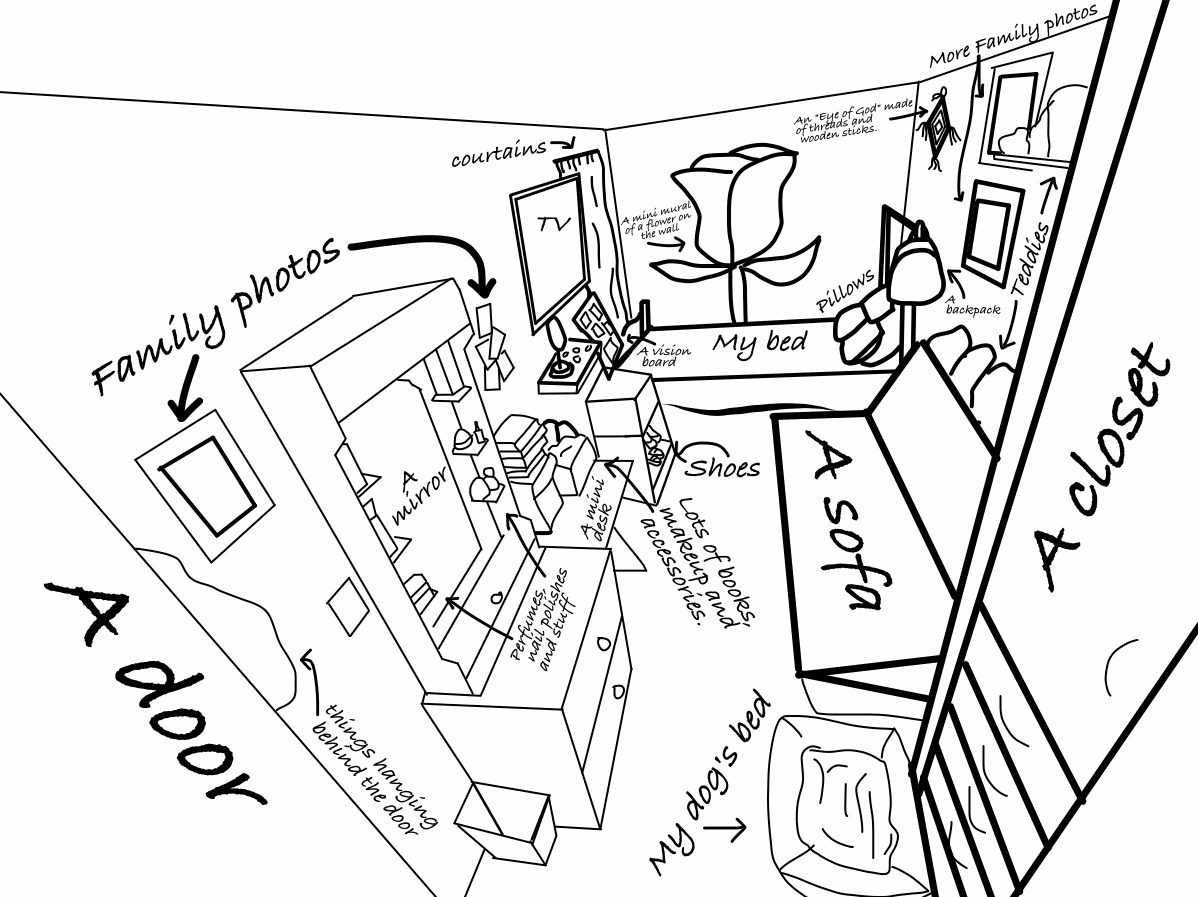 More Family photos
An "Eye of God" made
of threads and
wooden sticks.
courtains
TV
A mini mural
of a flower on
the wall
Family photos
Pillows
Teddies
A
backpack
My bed
A vision
board
A closet
A
mirror
Shoes
A sofa
A mini
desk
Lots of books,
makeup and
accessories.
Perfumes,
nail polishes
and stuff
A door
things hanging
behind the door
My dog's bed